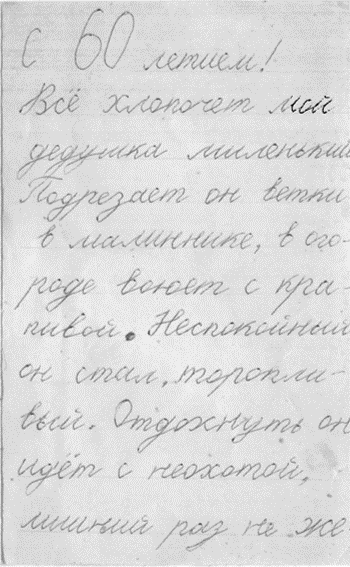 С 60 летием!
Всё хлопочет мой
дедушка миленький
Подрезает он ветки
в малиннике, в ого-
роде воюет с кра-
пивой. Неспокойный
он стал, торопли-
вый. Отдохнуть он
идёт с неохотой,
лишний раз не же-